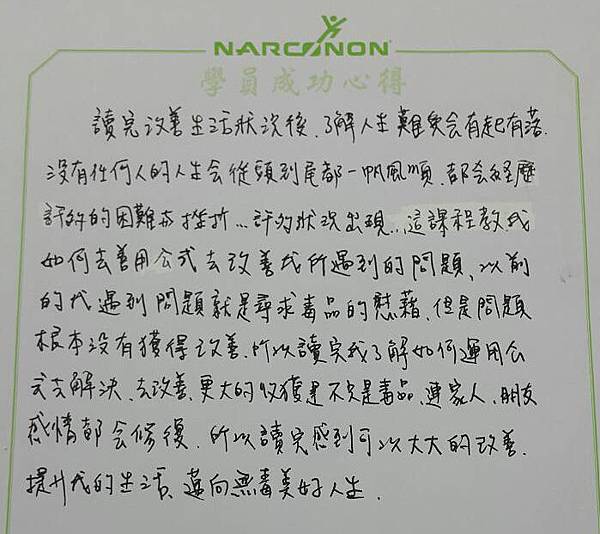 NARCONON
學員成功心得
讀完改善生活狀況後、了解人生難免會有起有落.
没有任何人的人生会從頭到尾都一帆風順、都会經歷
許多的困難与挫折…許多狀況出現…這課程教我
如何去善用公式去改善我所遇到的問題、以前
的我遇到問題就是尋求毒品的慰藉、但是問題
根本没有獲得改善.所以讀完我了解如何運用公
式去解決、去改善.更大的收獲是不只是毒品、連家人、朋友
感情都会修復.所以讀完感到可以大大的改善.
提升我的生活、邁向無毒美好人生.